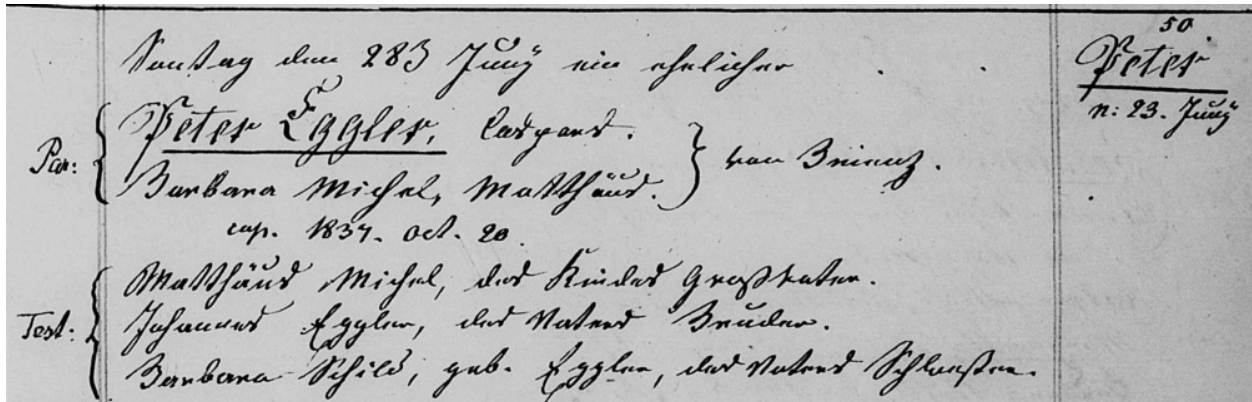 Sontag den 283 Junÿ ein ehelicher
50.
Peter
n: 23. Junÿ
Par:
Peter Eggler, Caspars.
Barbara Michel, Matthäus.
von Brienz.
cop. 1837. Oct. 20.
Test:
Matthäus Michel, des Kindes Großvater.
Johannes Eggler, des Vaters Bruder.
Barbara Schild, geb. Eggler, des Vaters Schwester.